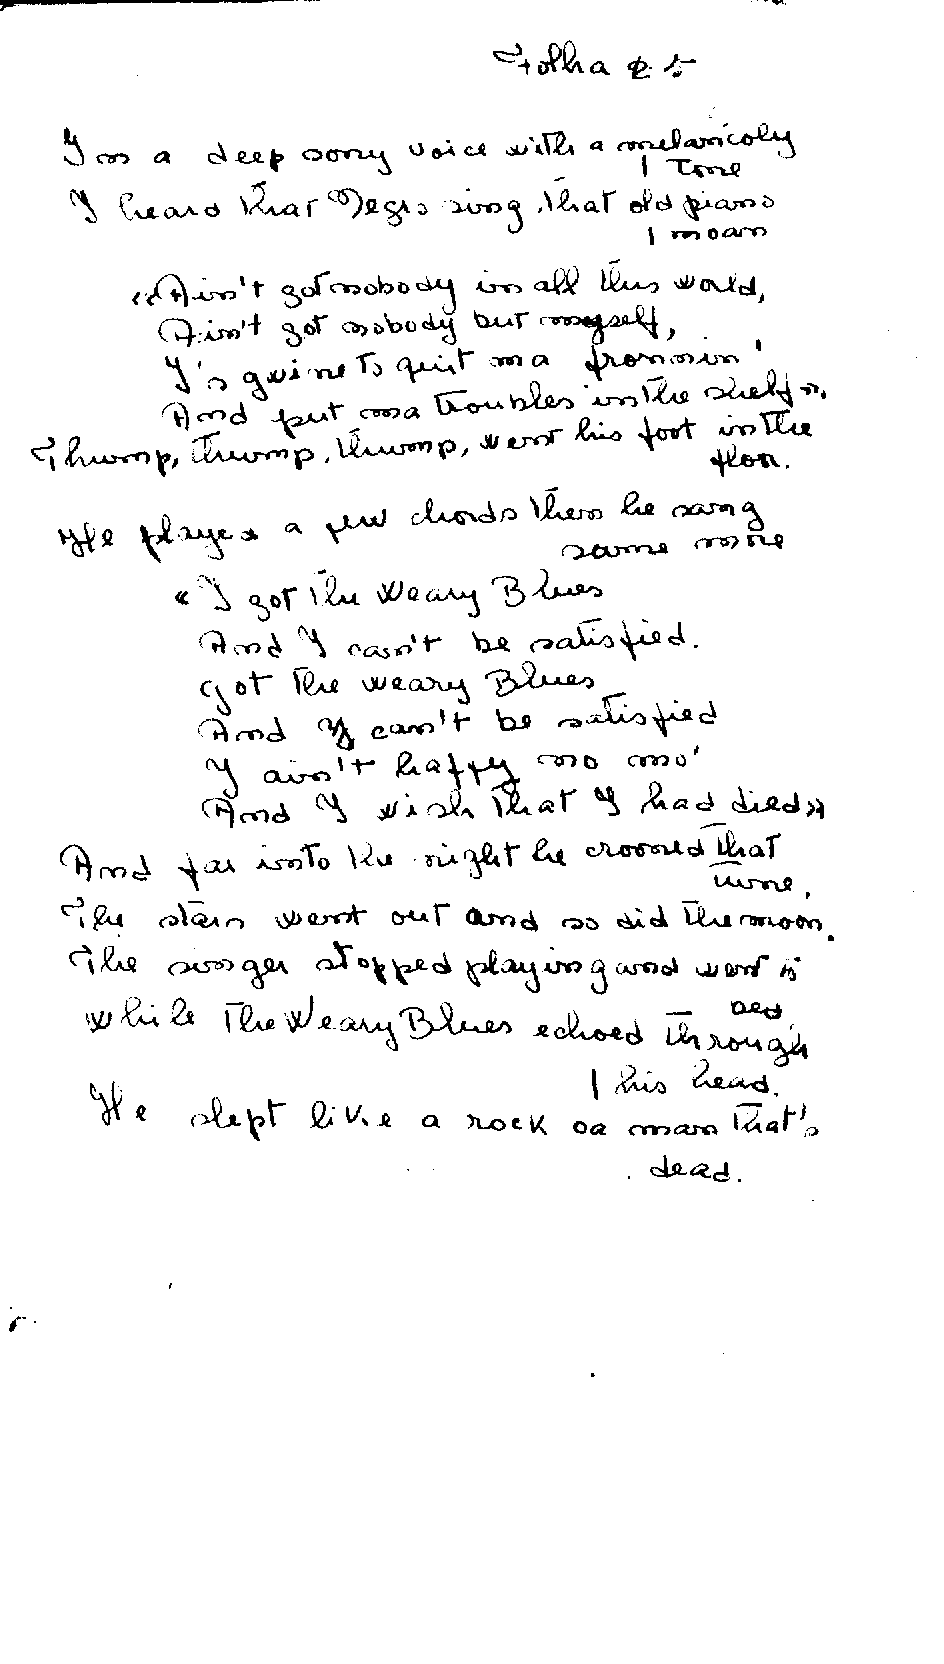 Folha 5
In a deep song voice with a melancoly
| tone
I heard that Negro sing, that old piano
| moan
«Ain't got nobody in all this world,
Ain't got nobody but myself,
I's gwine to quit ma fronnin'
And put ma troubles in the shelf».
Thump, thump, thump, went his foot in the
floor.
He played a few chords then he sang
same more
«I got the Weary Blues
And I can't be satisfied.
got the weary Blues
And I can't be satisfied
I ain't happy no mo'
And I wish that I had died»
And far into the night he crooned that
tune.
The stars went out and so did the moon.
The singer stopped playing and went to
bed
while the Weary Blues echoed through
| his head.
He slept like a rock oa man that's
dead.